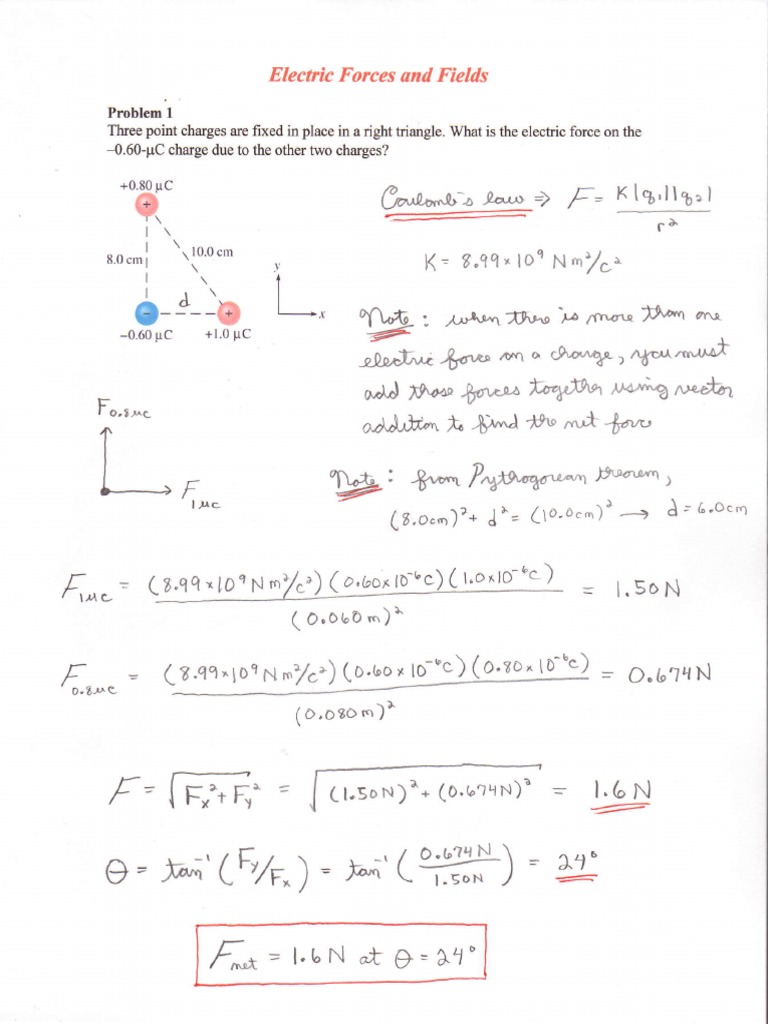 Electric Forces and Fields
Problem 1
Three point charges are fixed in place in a right triangle. What is the electric force on the
–0.60-μC charge due to the other two charges?
+0.80 μC
+
8.0 cm
10.0 cm
d
–
+
–0.60 μC
+1.0 μC
y
x
Coulomb's law ⇒ F = K|q₁||q₂| / r²
K = 8.99×10⁹ Nm²/c²
Note: when there is more than one
electric force on a charge, you must
add those forces together using vector
addition to find the net force
F₀.₈μc
F₁μc
Note: from Pythgorean theorem,
(8.0cm)² + d² = (10.0cm)² → d = 6.0cm
F₁μc = (8.99×10⁹ Nm²/c²)(0.60×10⁻⁶c)(1.0×10⁻⁶c) / (0.060m)² = 1.50N
F₀.₈μc = (8.99×10⁹ Nm²/c²)(0.60×10⁻⁶c)(0.80×10⁻⁶c) / (0.080m)² = 0.674N
F = √(Fₓ² + Fy²) = √((1.50N)² + (0.674N)²) = 1.6N
θ = tan⁻¹(Fy/Fₓ) = tan⁻¹(0.674N / 1.50N) = 24°
Fnet = 1.6N at θ = 24°